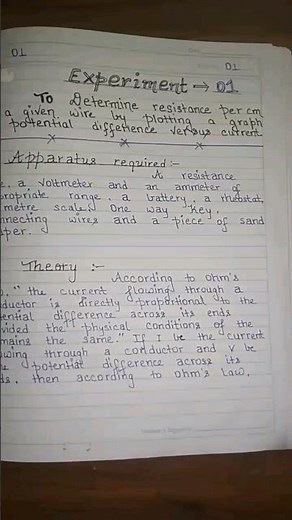 01
01
Experiment → 01
To Determine resistance per cm
a given wire by plotting a graph
potential difference versus current
Apparatus required :-
A resistance
a voltmeter and an ammeter of
propriate range, a battery, a rheostat,
metre scale, One way key,
nnecting wires and a piece of sand
per.
Theory :-
According to ohm's
"the current flowing through a
ductor is directly proportional to the
tential difference across its ends
vided the physical conditions of the
mains the same." If I be the current
wing through a conductor and V be
potential difference across its
ds, then according to ohm's Law,